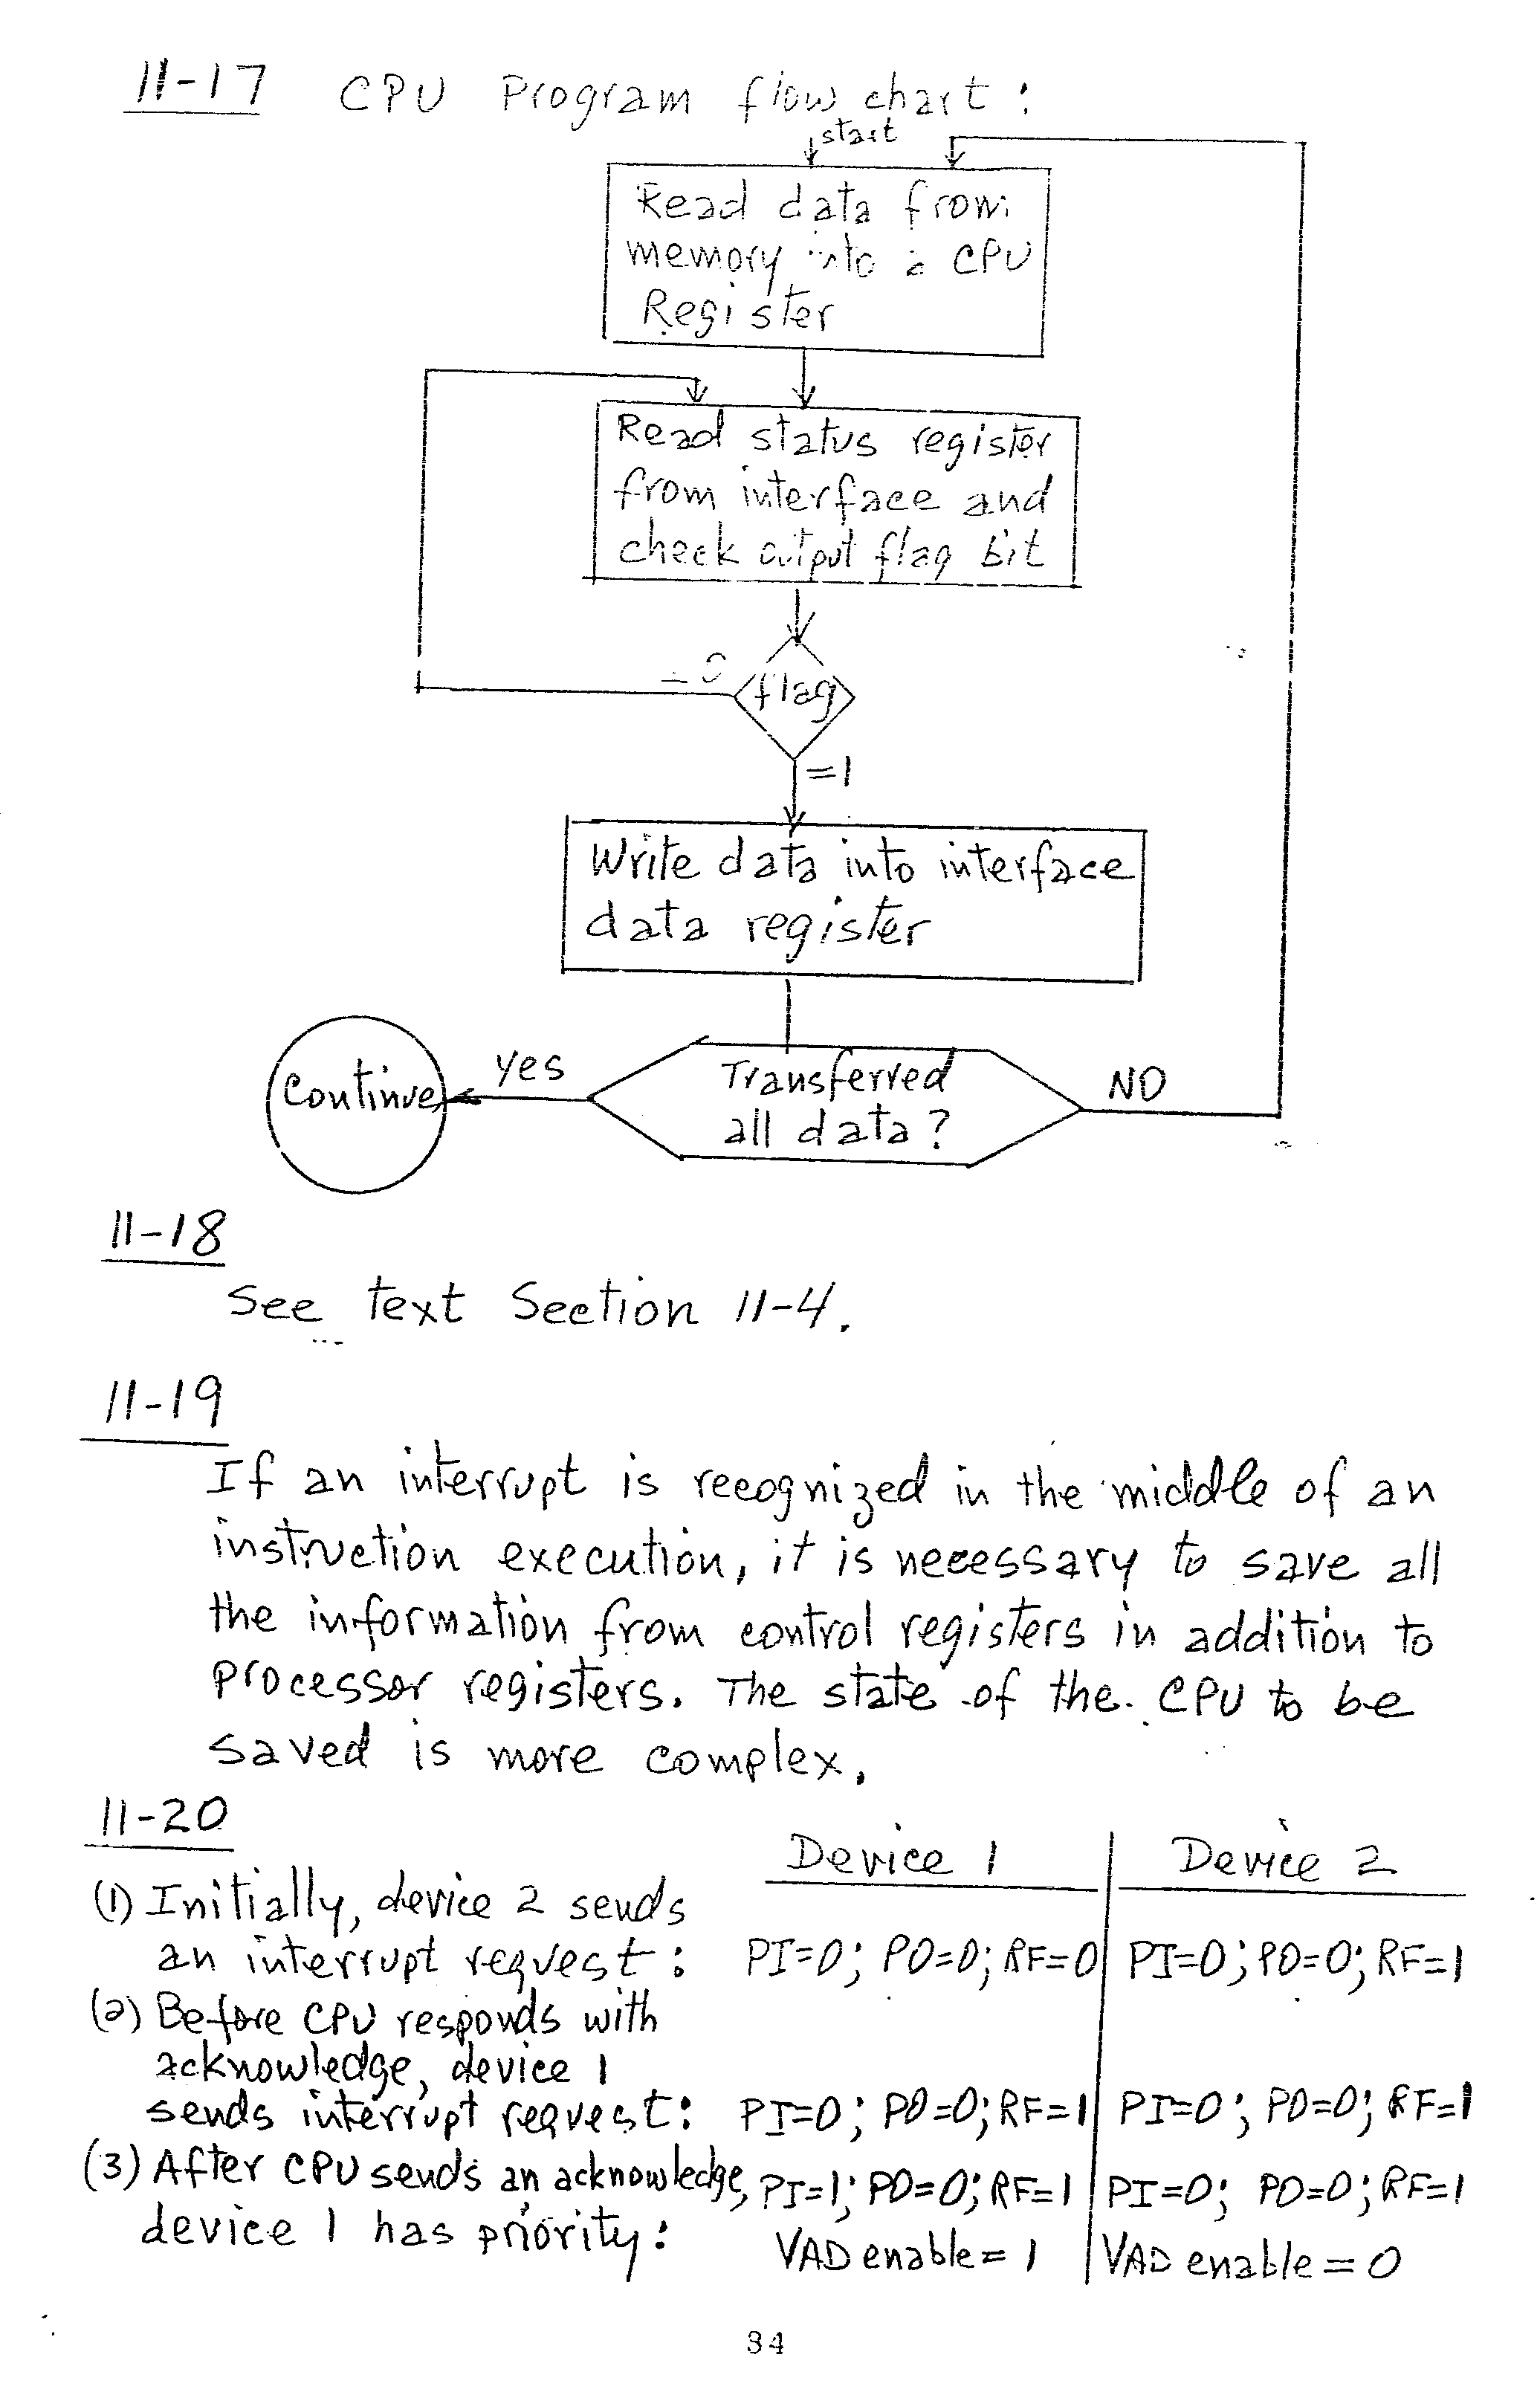 11-17 CPU Program flow chart:
start
Read data from
memory into a CPU
Register
Read status register
from interface and
check output flag bit
= 0
flag
=1
Write data into interface
data register
Continue
Yes
Transferred
all data?
NO
11-18
See text Section 11-4.
11-19
If an interrupt is recognized in the middle of an
instruction execution, it is necessary to save all
the information from control registers in addition to
processor registers. The state of the CPU to be
saved is more complex.
11-20
Device 1 Device 2
(1) Initially, device 2 sends
an interrupt request: PI=0; PO=0; RF=0 PI=0; PO=0; RF=1
(2) Before CPU responds with
acknowledge, device 1
sends interrupt request: PI=0; PO=0; RF=1 PI=0; PO=0; RF=1
(3) After CPU sends an acknowledge, PI=1; PO=0; RF=1 PI=0; PO=0; RF=1
device 1 has priority: VAD enable = 1 VAD enable = 0
84